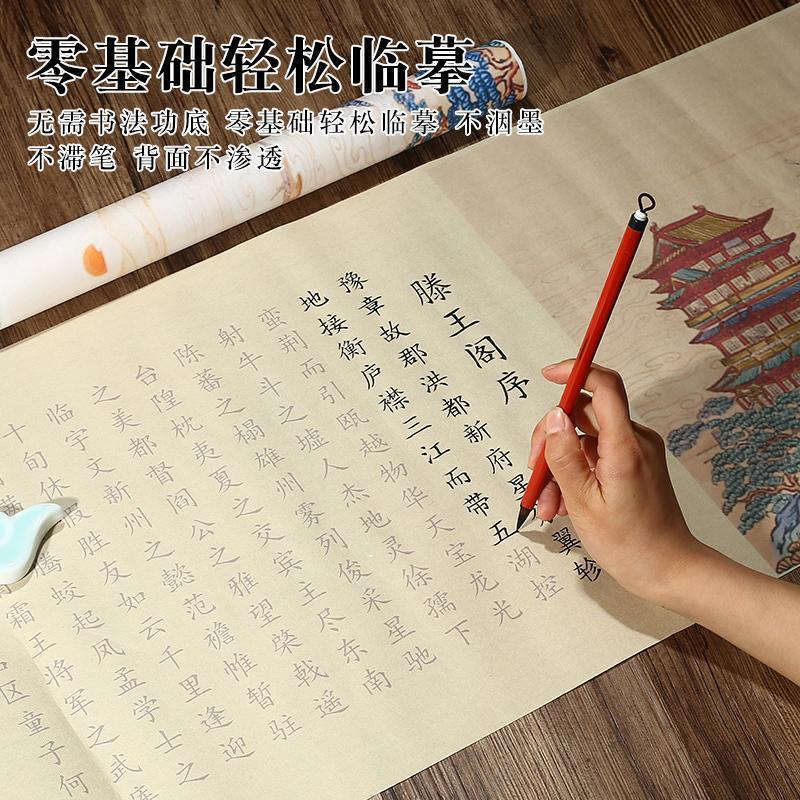 零基础轻松临摹
无需书法功底 零基础轻松临摹 不洇墨
不滞笔 背面不渗透
滕王阁序
豫章故郡洪都新府星翼轸
地接衡庐襟三江而带五湖控
蛮荆而引瓯越物华天宝龙光
射牛斗之墟人杰地灵徐孺下
陈蕃之榻雄州雾列俊采星驰
台隍枕夷夏之交宾主尽东南
之美都督阎公之雅望棨戟遥
临宇文新州之懿范襜帷暂驻
十旬休假胜友如云千里逢迎
腾蛟起凤孟学士之
霜王将军之武库
区童子何